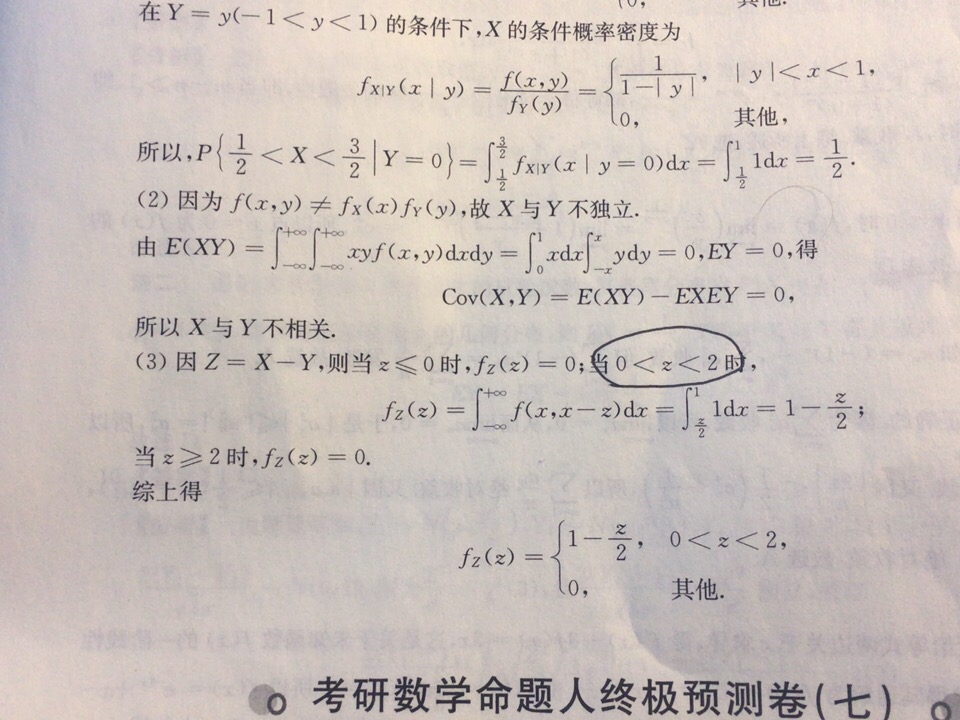 (0, 其他.
在 Y = y(−1 < y < 1) 的条件下, X 的条件概率密度为
f_{X|Y}(x | y) = \frac{f(x,y)}{f_Y(y)} = \begin{cases} \frac{1}{1-|y|}, & |y| < x < 1, \\ 0, & 其他, \end{cases}
所以, P{\frac{1}{2} < X < \frac{3}{2} | Y = 0} = ∫_{\frac{1}{2}}^{\frac{3}{2}} f_{X|Y}(x | y = 0)dx = ∫_{\frac{1}{2}}^{1} 1dx = \frac{1}{2}.
(2) 因为 f(x,y) ≠ f_X(x)f_Y(y), 故 X 与 Y 不独立.
由 E(XY) = ∫_{−∞}^{+∞}∫_{−∞}^{+∞} xyf(x,y)dxdy = ∫_0^1 xdx∫_{−x}^{x} ydy = 0, EY = 0, 得
Cov(X,Y) = E(XY) − EXEY = 0,
所以 X 与 Y 不相关.
(3) 因 Z = X − Y, 则当 z ≤ 0 时, f_Z(z) = 0; 当 0 < z < 2 时,
f_Z(z) = ∫_{−∞}^{+∞} f(x,x−z)dx = ∫_{\frac{z}{2}}^{1} 1dx = 1 − \frac{z}{2};
当 z ≥ 2 时, f_Z(z) = 0.
综上得
f_Z(z) = \begin{cases} 1 − \frac{z}{2}, & 0 < z < 2, \\ 0, & 其他. \end{cases}
考研数学命题人终极预测卷(七)